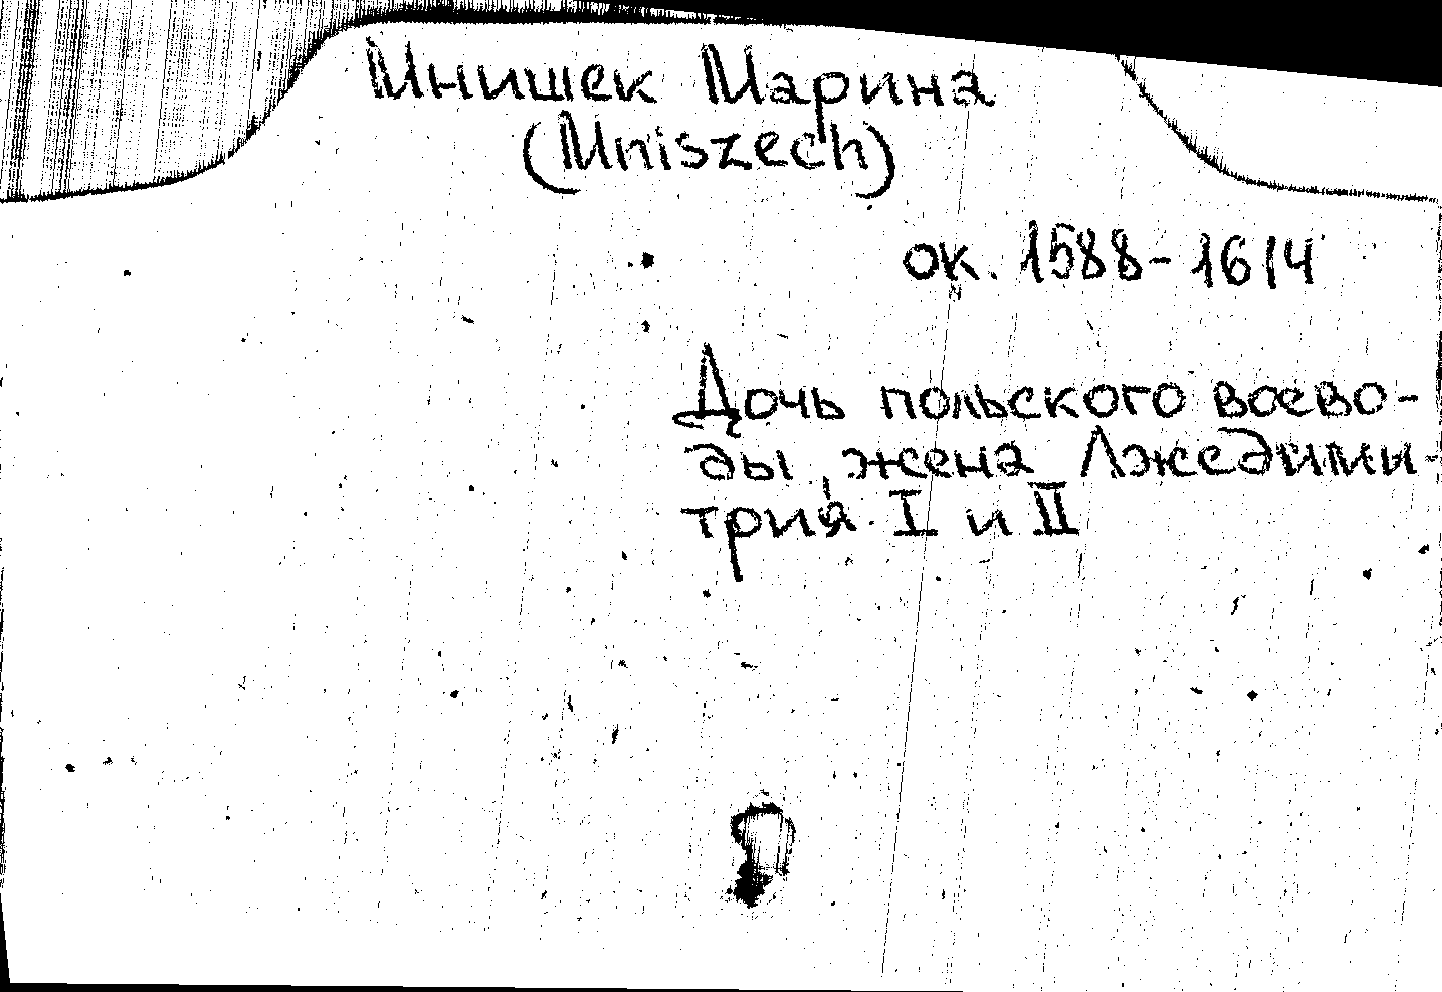 Мнишек Марина
(Mniszech)
ок. 1588-1614
Дочь польского воево-
ды, жена Лжедими-
трия I и II